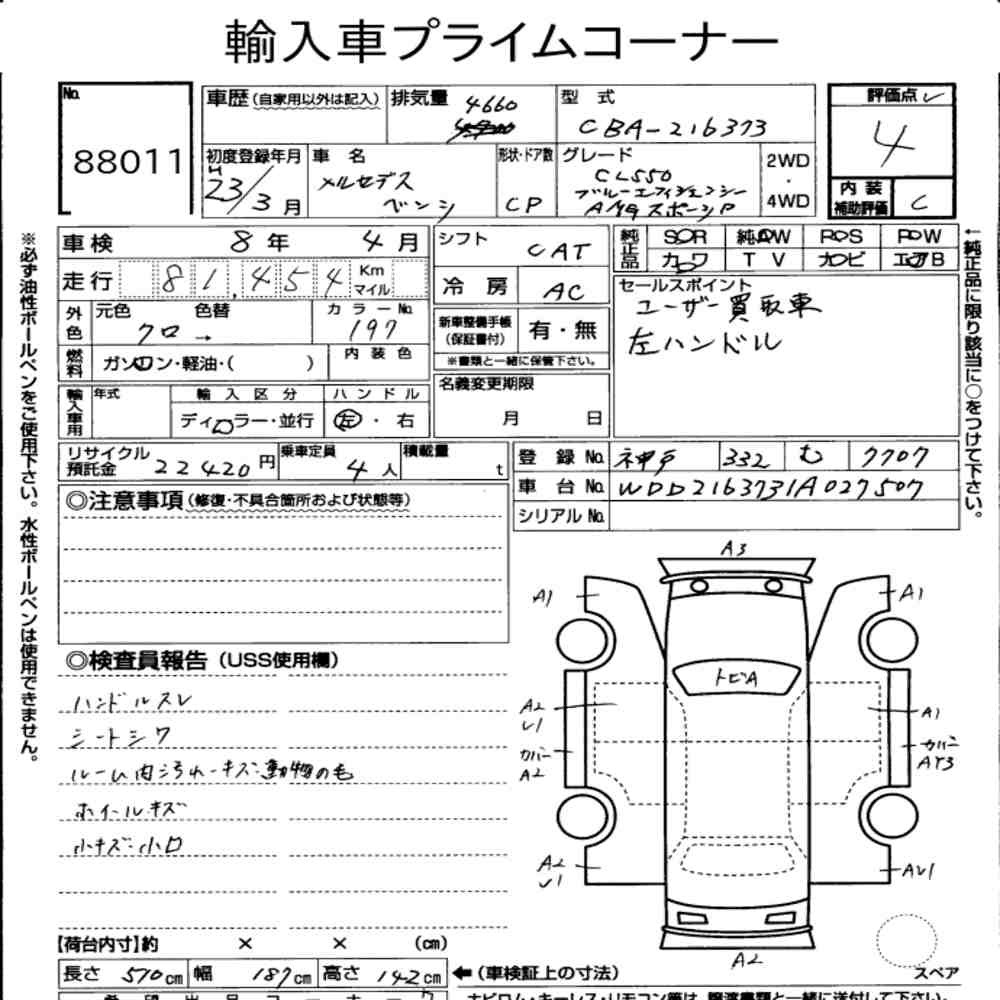 輸入車プライムコーナー
No. 88011
車歴 (自家用以外は記入)
排気量 4660
型式 CBA-216373
評価点 4
内装補助評価 C
初度登録年月 H23/3月
車名 メルセデス
ベンツ
形状・ドア数 CP
グレード CL550
ブルーエフィシェンシー
AMGスポーツP
2WD・4WD
車検 8年 4月
走行 81,454 Km マイル
シフト CAT
冷房 AC
純正品 SOR 純AW POS POW
カワ TV ナビ エアB
外色 元色 クロ → 色替
カラーNo. 197
燃料 ガソリン・軽油・( )
内装色
新車整備手帳(保証書付) 有・無
※書類と一緒に保管下さい。
セールスポイント
ユーザー買取車
左ハンドル
輸入車用 年式 輸入区分 ハンドル
ディーラー・並行 左・右
名義変更期限
月 日
リサイクル預託金 22420円
乗車定員 4人
積載量 t
登録No. 神戸 332 む 7707
車台No. WDD2163731A027507
シリアルNo.
◎注意事項 (修復・不具合箇所および状態等)
※必ず油性ボールペンをご使用下さい。水性ボールペンは使用できません。
←純正品に限り該当に○をつけて下さい。
◎検査員報告 (USS使用欄)
ハンドルスレ
シートシワ
ルーム内汚れ・キズ・動物の毛
ホイールキズ
小キズ・小凹
A3
A1
A1
トビA
A2
U1
A1
カバー
A2
カバー
AY3
A2
U1
AU1
A2
スペア
【荷台内寸】約 × × (cm)
長さ 510cm 幅 187cm 高さ 142cm
←(車検証上の寸法)